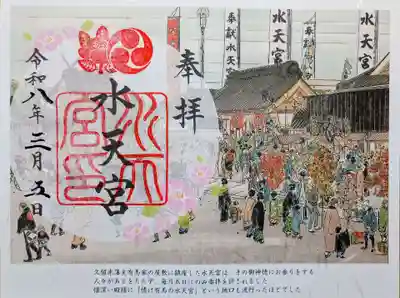 奉拝
水天宮
令和八年三月五日
水天宮印
奉獻水天宮
水天宮
久留米藩主有馬家の屋敷に鎮座した水天宮は、その御神徳にお参りをする
人々があとをたたず、毎月五日にのみ参拝を許されました
情深い殿様に「情け有馬の水天宮」という地口も流行ったほどでした